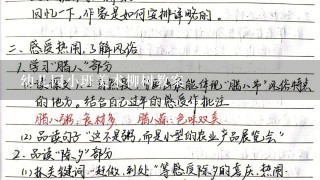 回忆一下,作家是如何安排详略的。
二、感受热闹,了解风俗
1.学习“腊八”部分
能体现“腊八节”风俗特点
的地方。结合自己过年的感受作批注
腊八粥:食材多 腊八蒜:色味双美
(2)品读句子“这不是粥,而是小型的农业产品展览会”
2.品读“除夕”部分
(1)抓关键词“赶做、到处”等感受除夕的喜庆、热闹.
幼儿园小班美术柳树教案